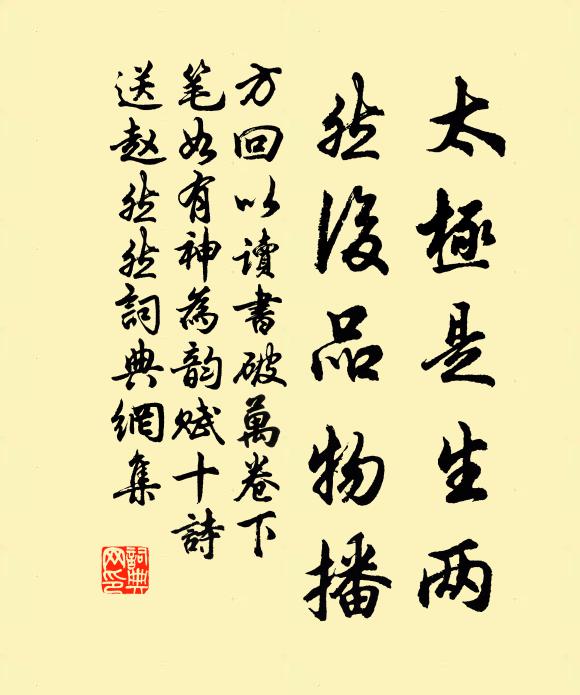 太極是生两
然後品物播
方回以讀書破萬卷下
笔如有神為韵赋十詩
送赵然然詞典網集
詞典网印